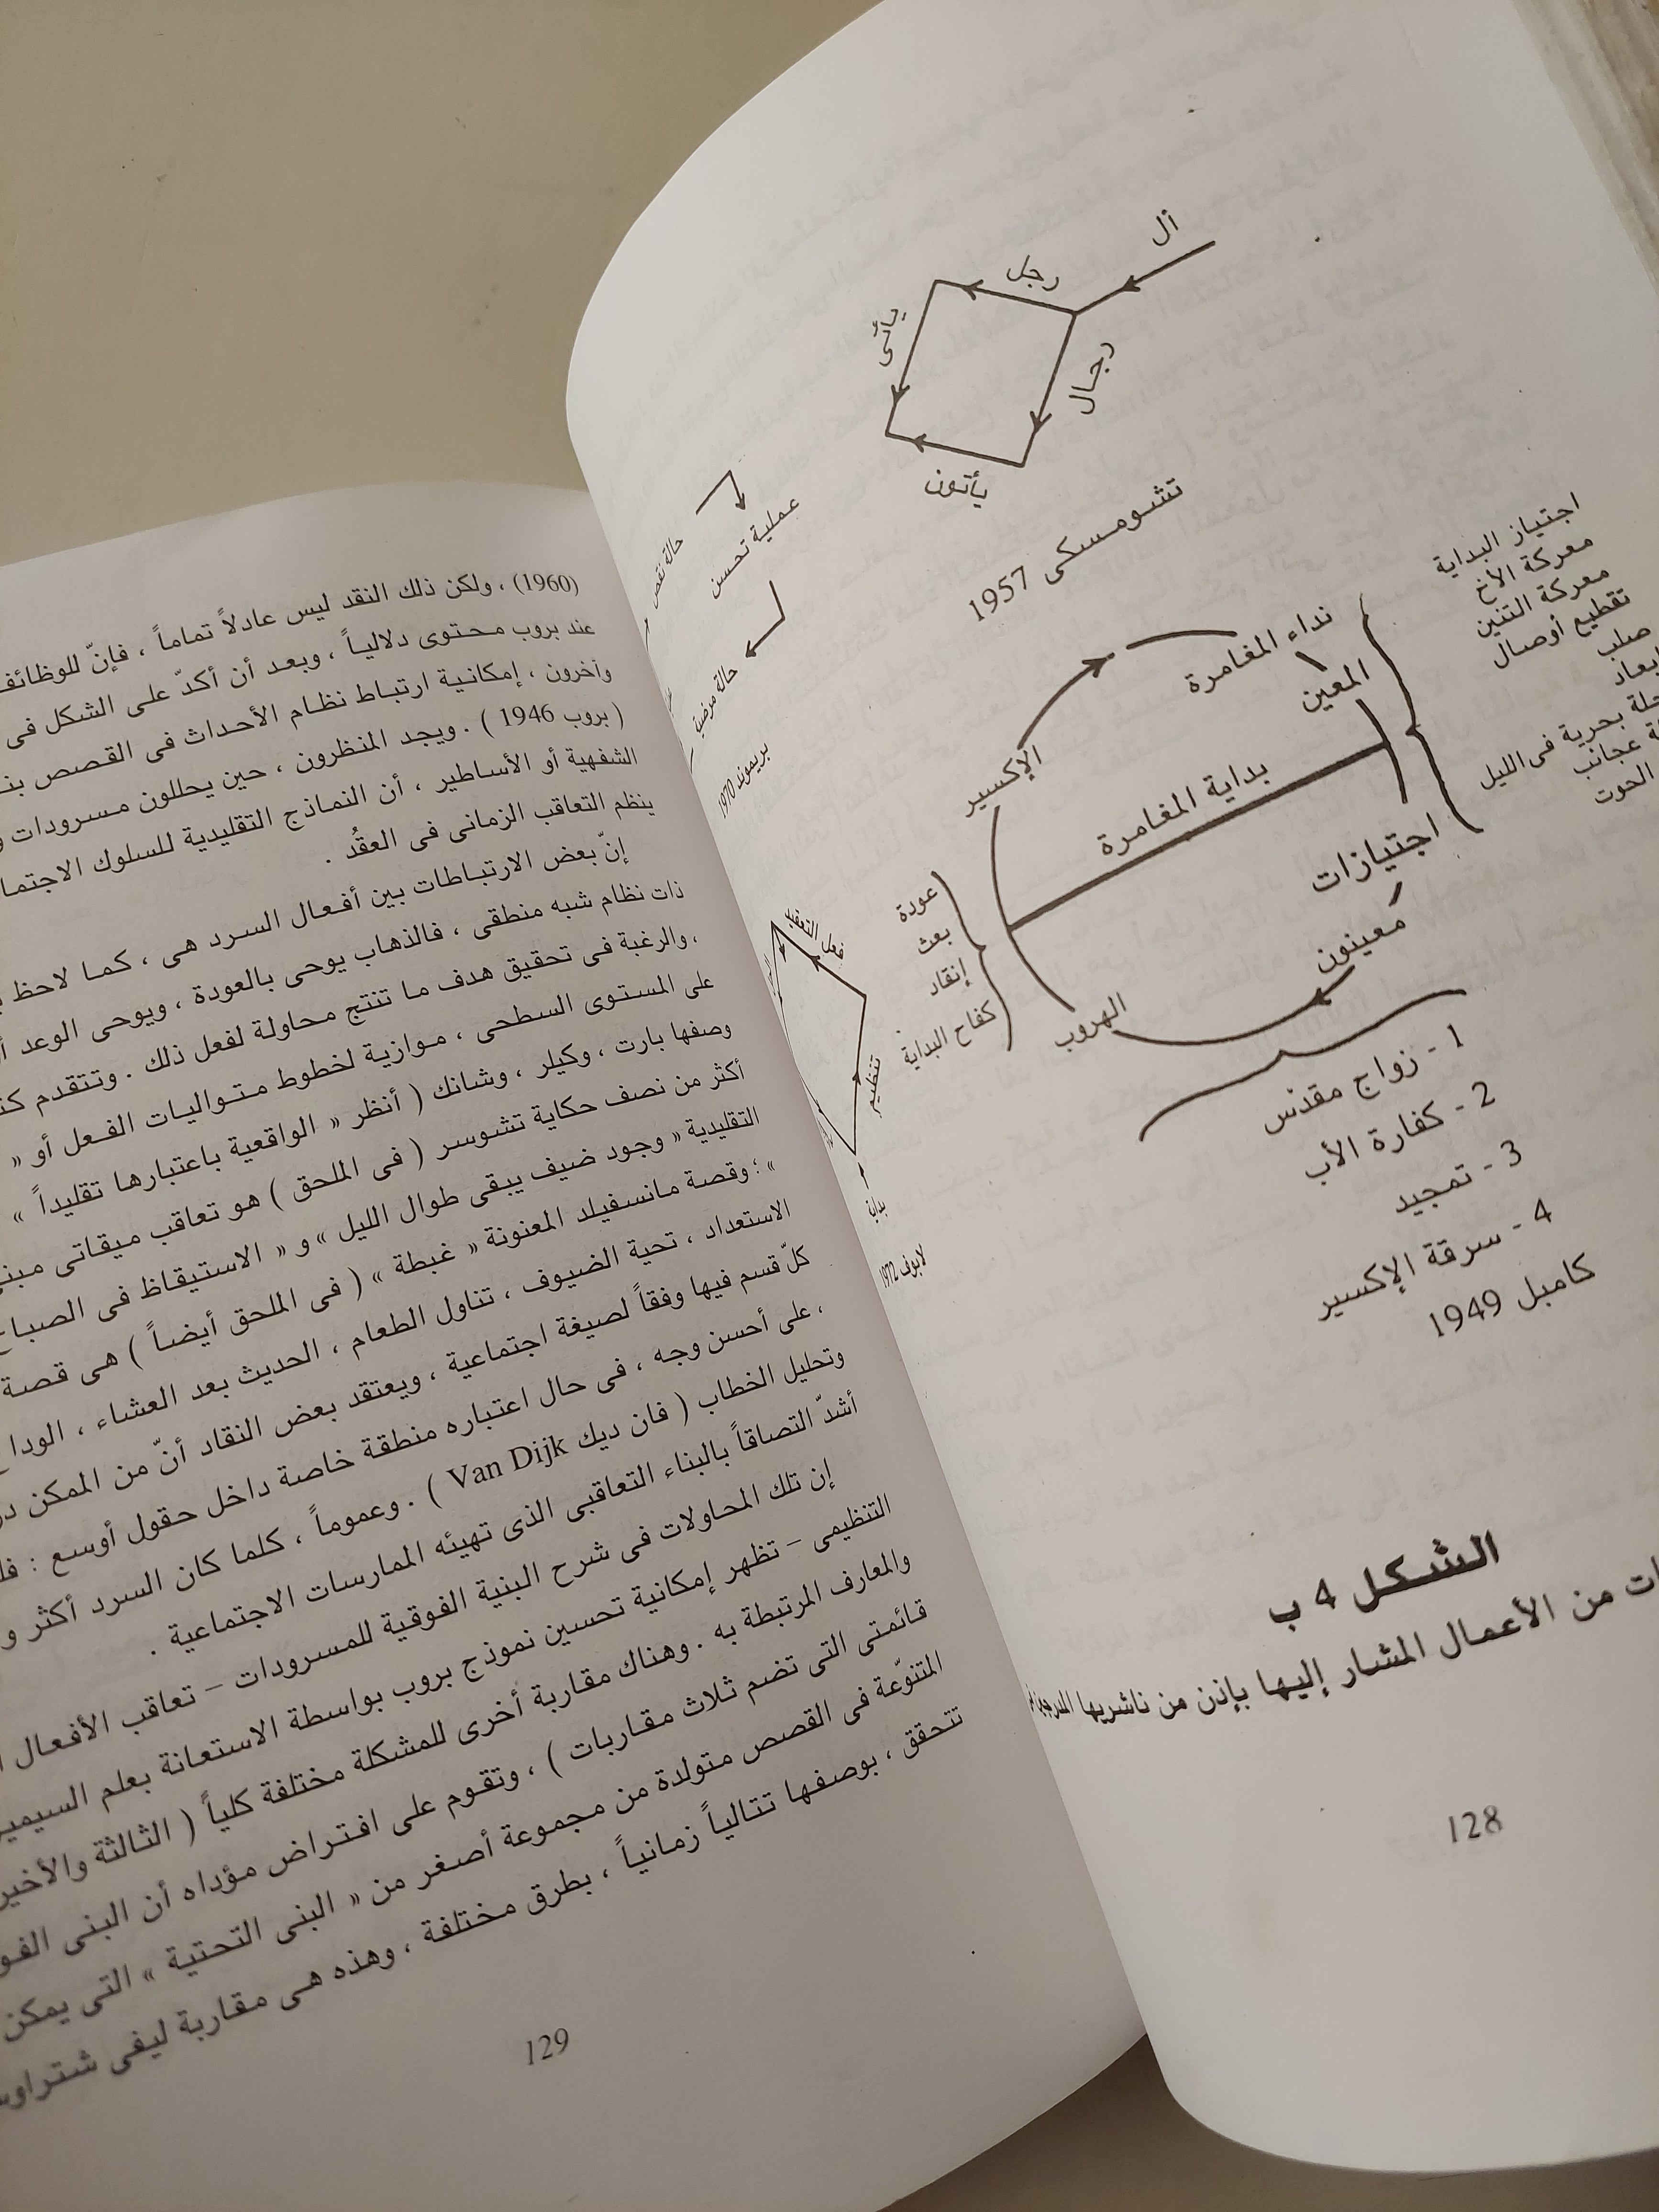 أل
رجل
يأتى
رجال
يأتون
تشومسكى 1957
حالة نقص
عملية تحسن
حالة مرضية
بريموند 1970
اجتياز البداية
معركة الأخ
معركة التنين
تقطيع أوصال
صلب
حلة بحرية فى الليل
عجائب
الحوت
نداء المغامرة
المعين
الإكسير
بداية المغامرة
اجتيازات
معينون
الهروب
عودة
بعث
إنقاد
كفاح البداية
1 - زواج مقدس
2 - كفارة الأب
3 - تمجيد
4 - سرقة الإكسير
كامبل 1949
فعل التعقيد
تنظيم
بداية
لابوف 1972
الشكل 4 ب
من الأعمال المشار إليها بإذن من ناشريها
128
(1960) ، ولكن ذلك النقد ليس عادلاً تماماً ، فإنّ للوظائف
عند بروب محتوى دلالياً ، وبعد أن أكدّ على الشكل فى
وآخرون ، إمكانية ارتباط نظام الأحداث فى القصص
( بروب 1946 ) . ويجد المنظرون ، حين يحللون مسرودات
الشفهية أو الأساطير ، أن النماذج التقليدية للسلوك
ينظم التعاقب الزمانى فى العقُد .
إنّ بعض الارتباطات بين أفعال السرد هى ، كما لاحظ
ذات نظام شبه منطقى ، فالذهاب يوحى بالعودة ، ويوحى الوعد
، والرغبة فى تحقيق هدف ما تنتج محاولة لفعل ذلك . وتتقدم
على المستوى السطحى ، موازية لخطوط متواليات الفعل أو »
وصفها بارت ، وكيلر ، وشانك ( أنظر « الواقعية باعتبارها تقليداً »
أكثر من نصف حكاية تشوسر ( فى الملحق ) هو تعاقب ميقاتى
التقليدية « وجود ضيف يبقى طوال الليل » و « الاستيقاظ فى
» ؛ وقصة مانسفيلد المعنونة « غبطة » ( فى الملحق أيضاً ) هى قصة
الاستعداد ، تحية الضيوف ، تناول الطعام ، الحديث بعد العشاء ،
كلّ قسم فيها وفقاً لصيغة اجتماعية ، ويعتقد بعض النقاد أنّ من الممكن
، على أحسن وجه ، فى حال اعتباره منطقة خاصة داخل حقول أوسع :
وتحليل الخطاب ( فان ديك Van Dijk ) . وعموماً ، كلما كان السرد أكثر
أشدّ التصاقاً بالبناء التعاقبى الذى تهيئه الممارسات الاجتماعية .
إن تلك المحاولات فى شرح البنية الفوقية للمسرودات – تعاقب الأفعال
التنظيمى – تظهر إمكانية تحسين نموذج بروب بواسطة الاستعانة بعلم
والمعارف المرتبطة به . وهناك مقاربة أخرى للمشكلة مختلفة كلياً ( الثالثة
قائمتى التى تضم ثلاث مقاربات ) ، وتقوم على افتراض مؤداه أن البنى
المتنوّعة فى القصص متولدة من مجموعة أصغر من « البنى التحتية » التى يمكن
تتحقق ، بوصفها تتالياً زمانياً ، بطرق مختلفة ، وهذه هى مقاربة ليفى
129